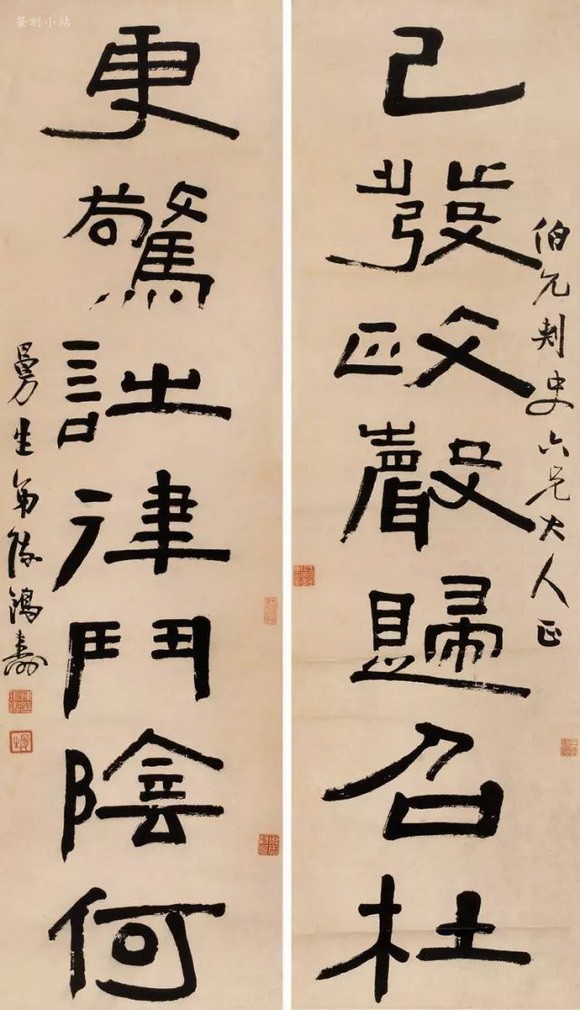 篆刻小站
伯允刺史六兄大人正
已發政聲歸召杜
更驚詩律鬥陰何
曼生弟陳鴻壽